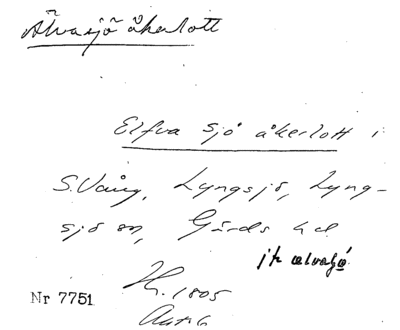 Älvasjö åkerlott
Elfva sjö åkerlott i
S. Vång, Lyngsjö, Lyng-
sjö sn, Gärds hd
jfr alvasjö
H. 1805
Nr 7751
Akt 6